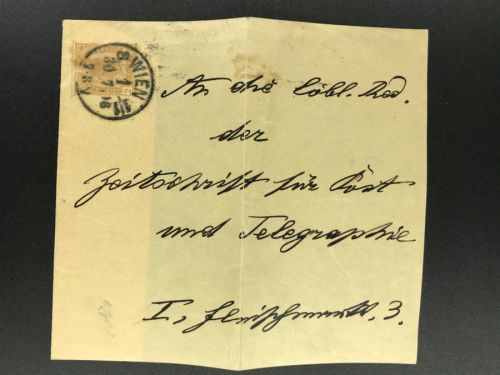 WIEN 1/1
An die löbl. Red.
der
Zeitschrift für Post
und Telegraphie
I, Fleischmarkt 3.